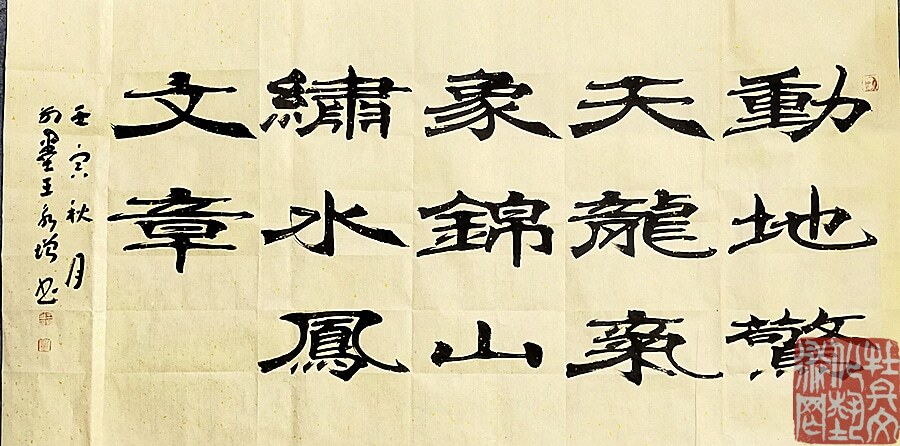 動地驚
天龍氣
象錦山
繡水鳳
文章
壬寅秋月
墨王永增书